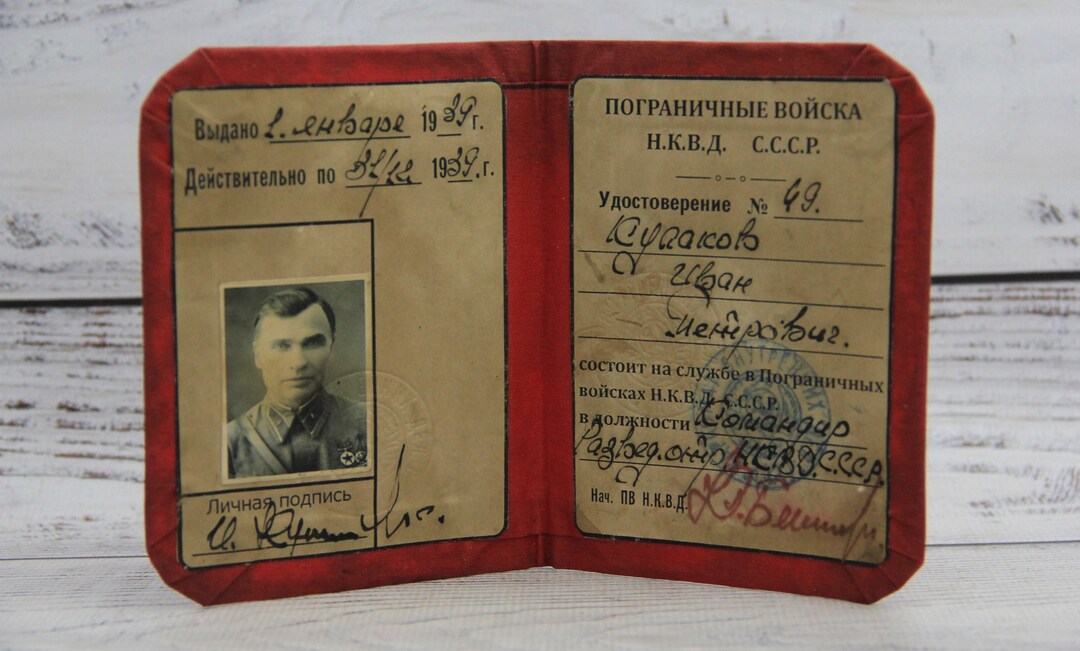 Выдано 1. января 1939 г.
Действительно по 31/12 1939. г.
Личная подпись
ПОГРАНИЧНЫЕ ВОЙСКА
Н.К.В.Д. С.С.С.Р.
Удостоверение № 49.
Кулаков
Иван
Петрович.
состоит на службе в Пограничных
войсках Н.К.В.Д. С.С.С.Р.
в должности Командир
Развед. отр НКВД С.С.С.Р.
Нач. ПВ Н.К.В.Д.